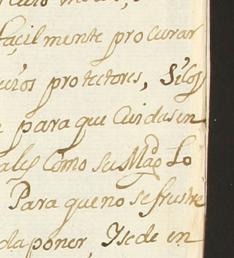 façilmente procurar
protectores, Si los
para que Cuidasen
ales Como su Magd. Lo
Para que no se frustre
da poner, Y se de en